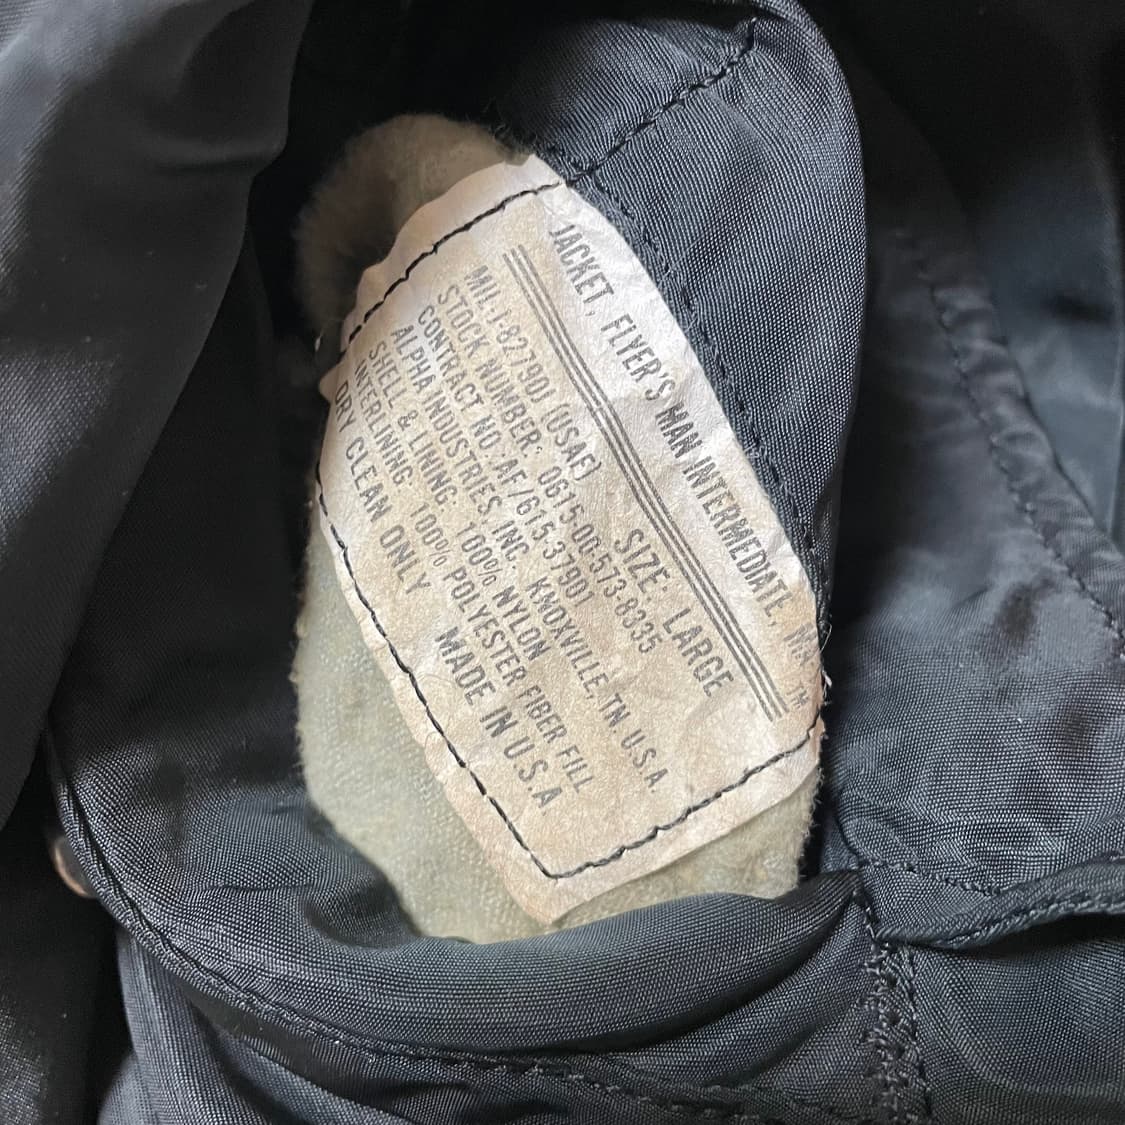 JACKET, FLYER'S MAN INTERMEDIATE, MA
TM
SIZE: LARGE
MIL-J-8279OJ (USAF)
STOCK NUMBER: 0615-00-573-8335
CONTRACT NO: AF/615-3790J
ALPHA INDUSTRIES INC. KNOXVILLE, TN. U.S.A.
SHELL & LINING: 100% NYLON
INTERLINING: 100% POLYESTER FIBER FILL
DRY CLEAN ONLY
MADE IN U.S.A